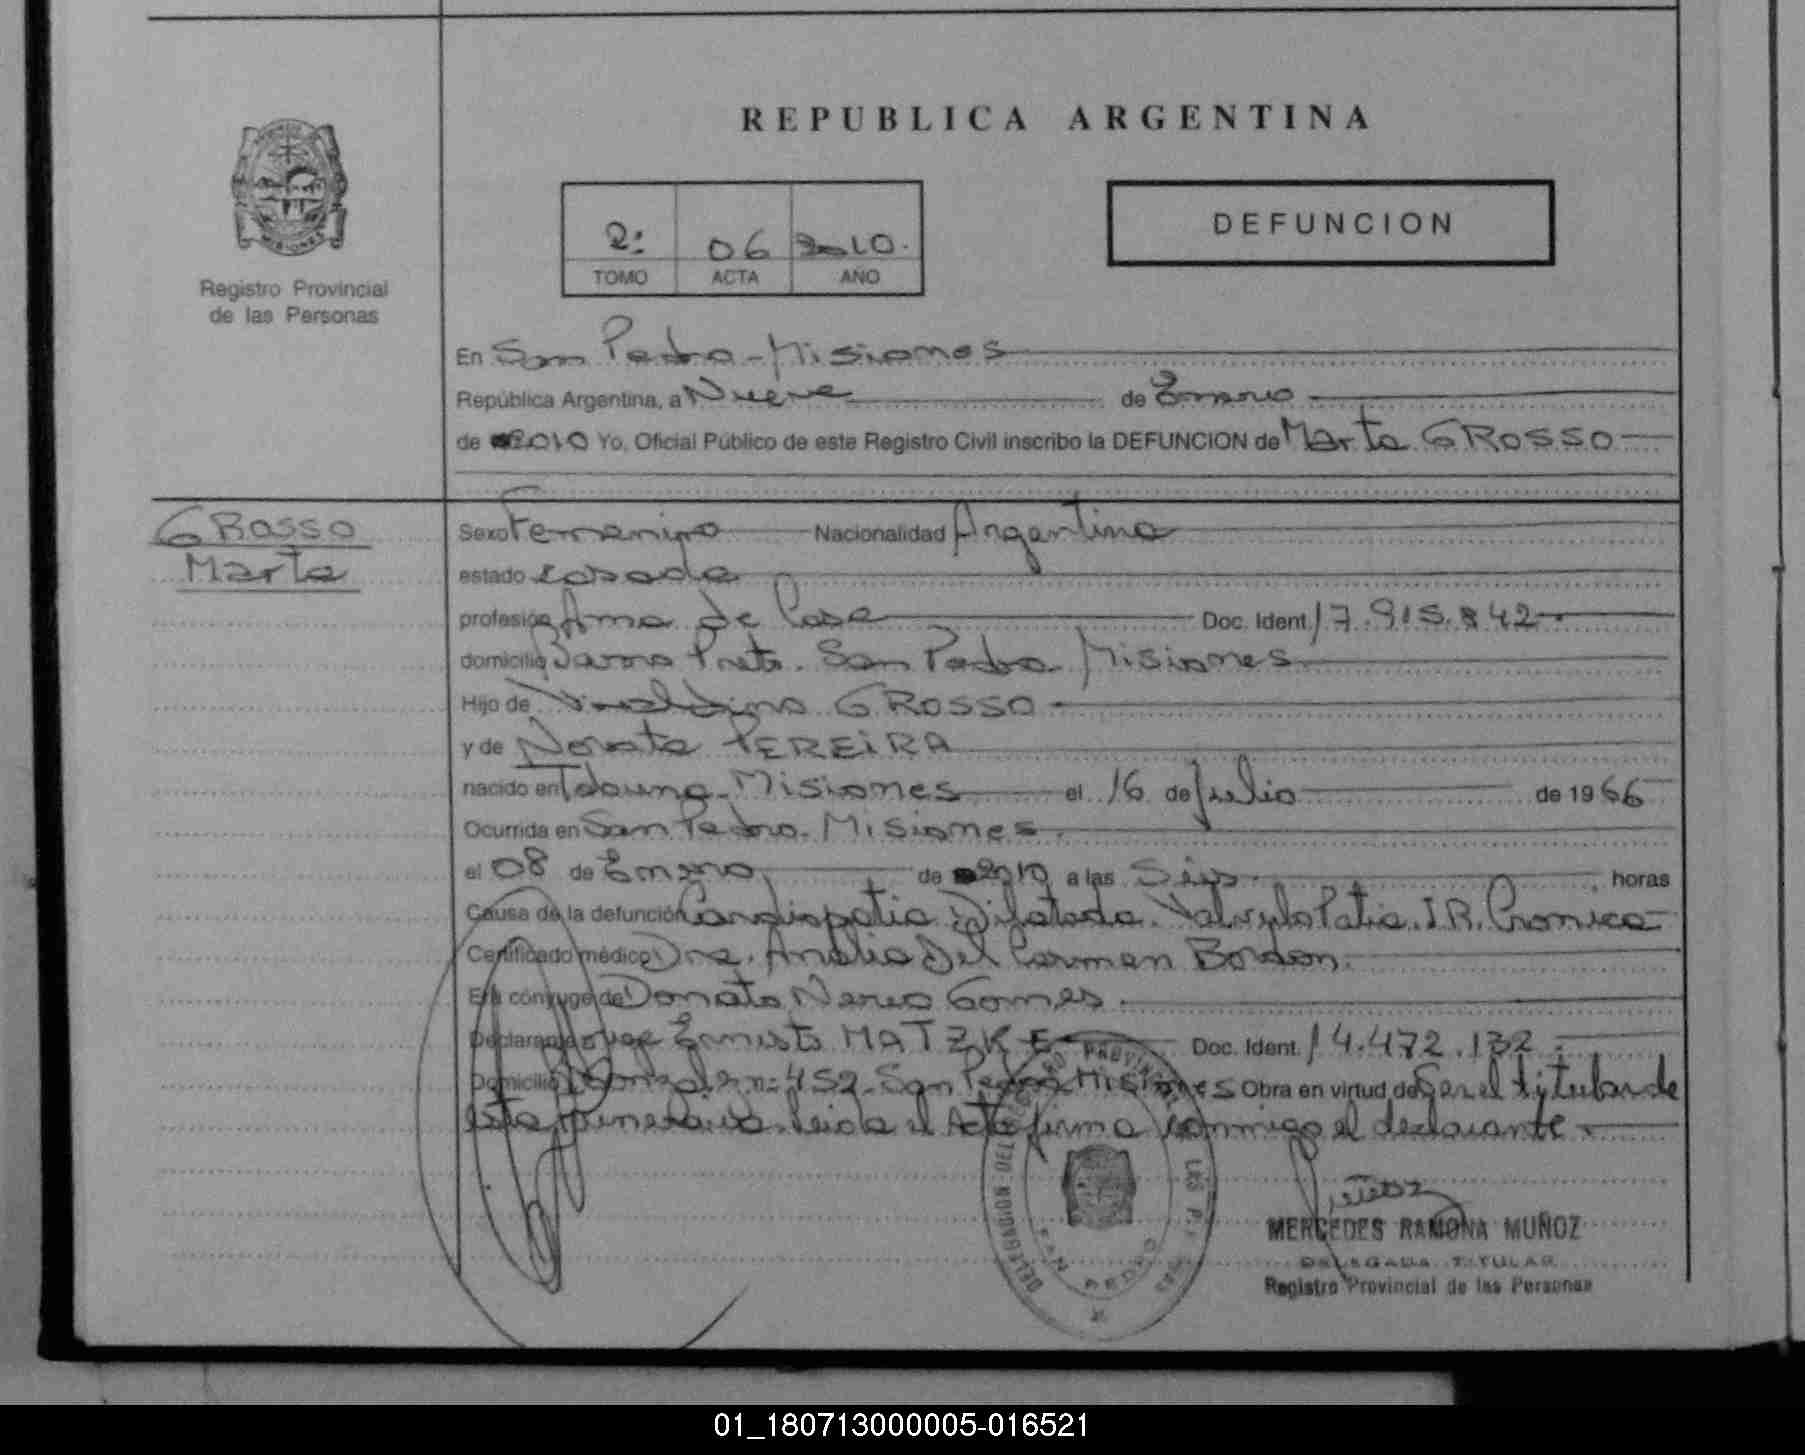 REPUBLICA ARGENTINA
DEFUNCION
2: 06 2010.
TOMO ACTA AÑO
Registro Provincial
de las Personas
En San Pedro - Misiones
República Argentina, a Nueve de Enero
de 2010 Yo, Oficial Público de este Registro Civil inscribo la DEFUNCION de Marta GROSSO
GROSSO
Marta
Sexo Femenino Nacionalidad Argentina
estado casada
profesión Ama de Casa Doc. Ident. 17.915.842.
domicilio San Pedro Misiones
Hijo de GROSSO
y de PEREIRA
nacido en Misiones el 16 de Julio de 1966
Ocurrida en San Pedro. Misiones.
el 08 de Enero de 2010 a las Seis horas
Causa de la defunción Cardiopatia Dilatada. Valvulopatia. I.R. Cronica
Certificado médico Dra. Analia Del Carmen Bordon.
Era cónyuge de Donato Nereo Gomes.
Declarante Ernesto MATZKE Doc. Ident. 14.472.132.
Domicilio nº 452. San Pedro Misiones Obra en virtud de Ser el titular de
esta funeraria. leida el Acta firma conmigo el declarante.
DELEGACION DEL REGISTRO PROVINCIAL DE LAS PERSONAS
SAN PEDRO
MERCEDES RAMONA MUÑOZ
DELEGADA TITULAR
Registro Provincial de las Personas
01_180713000005-016521